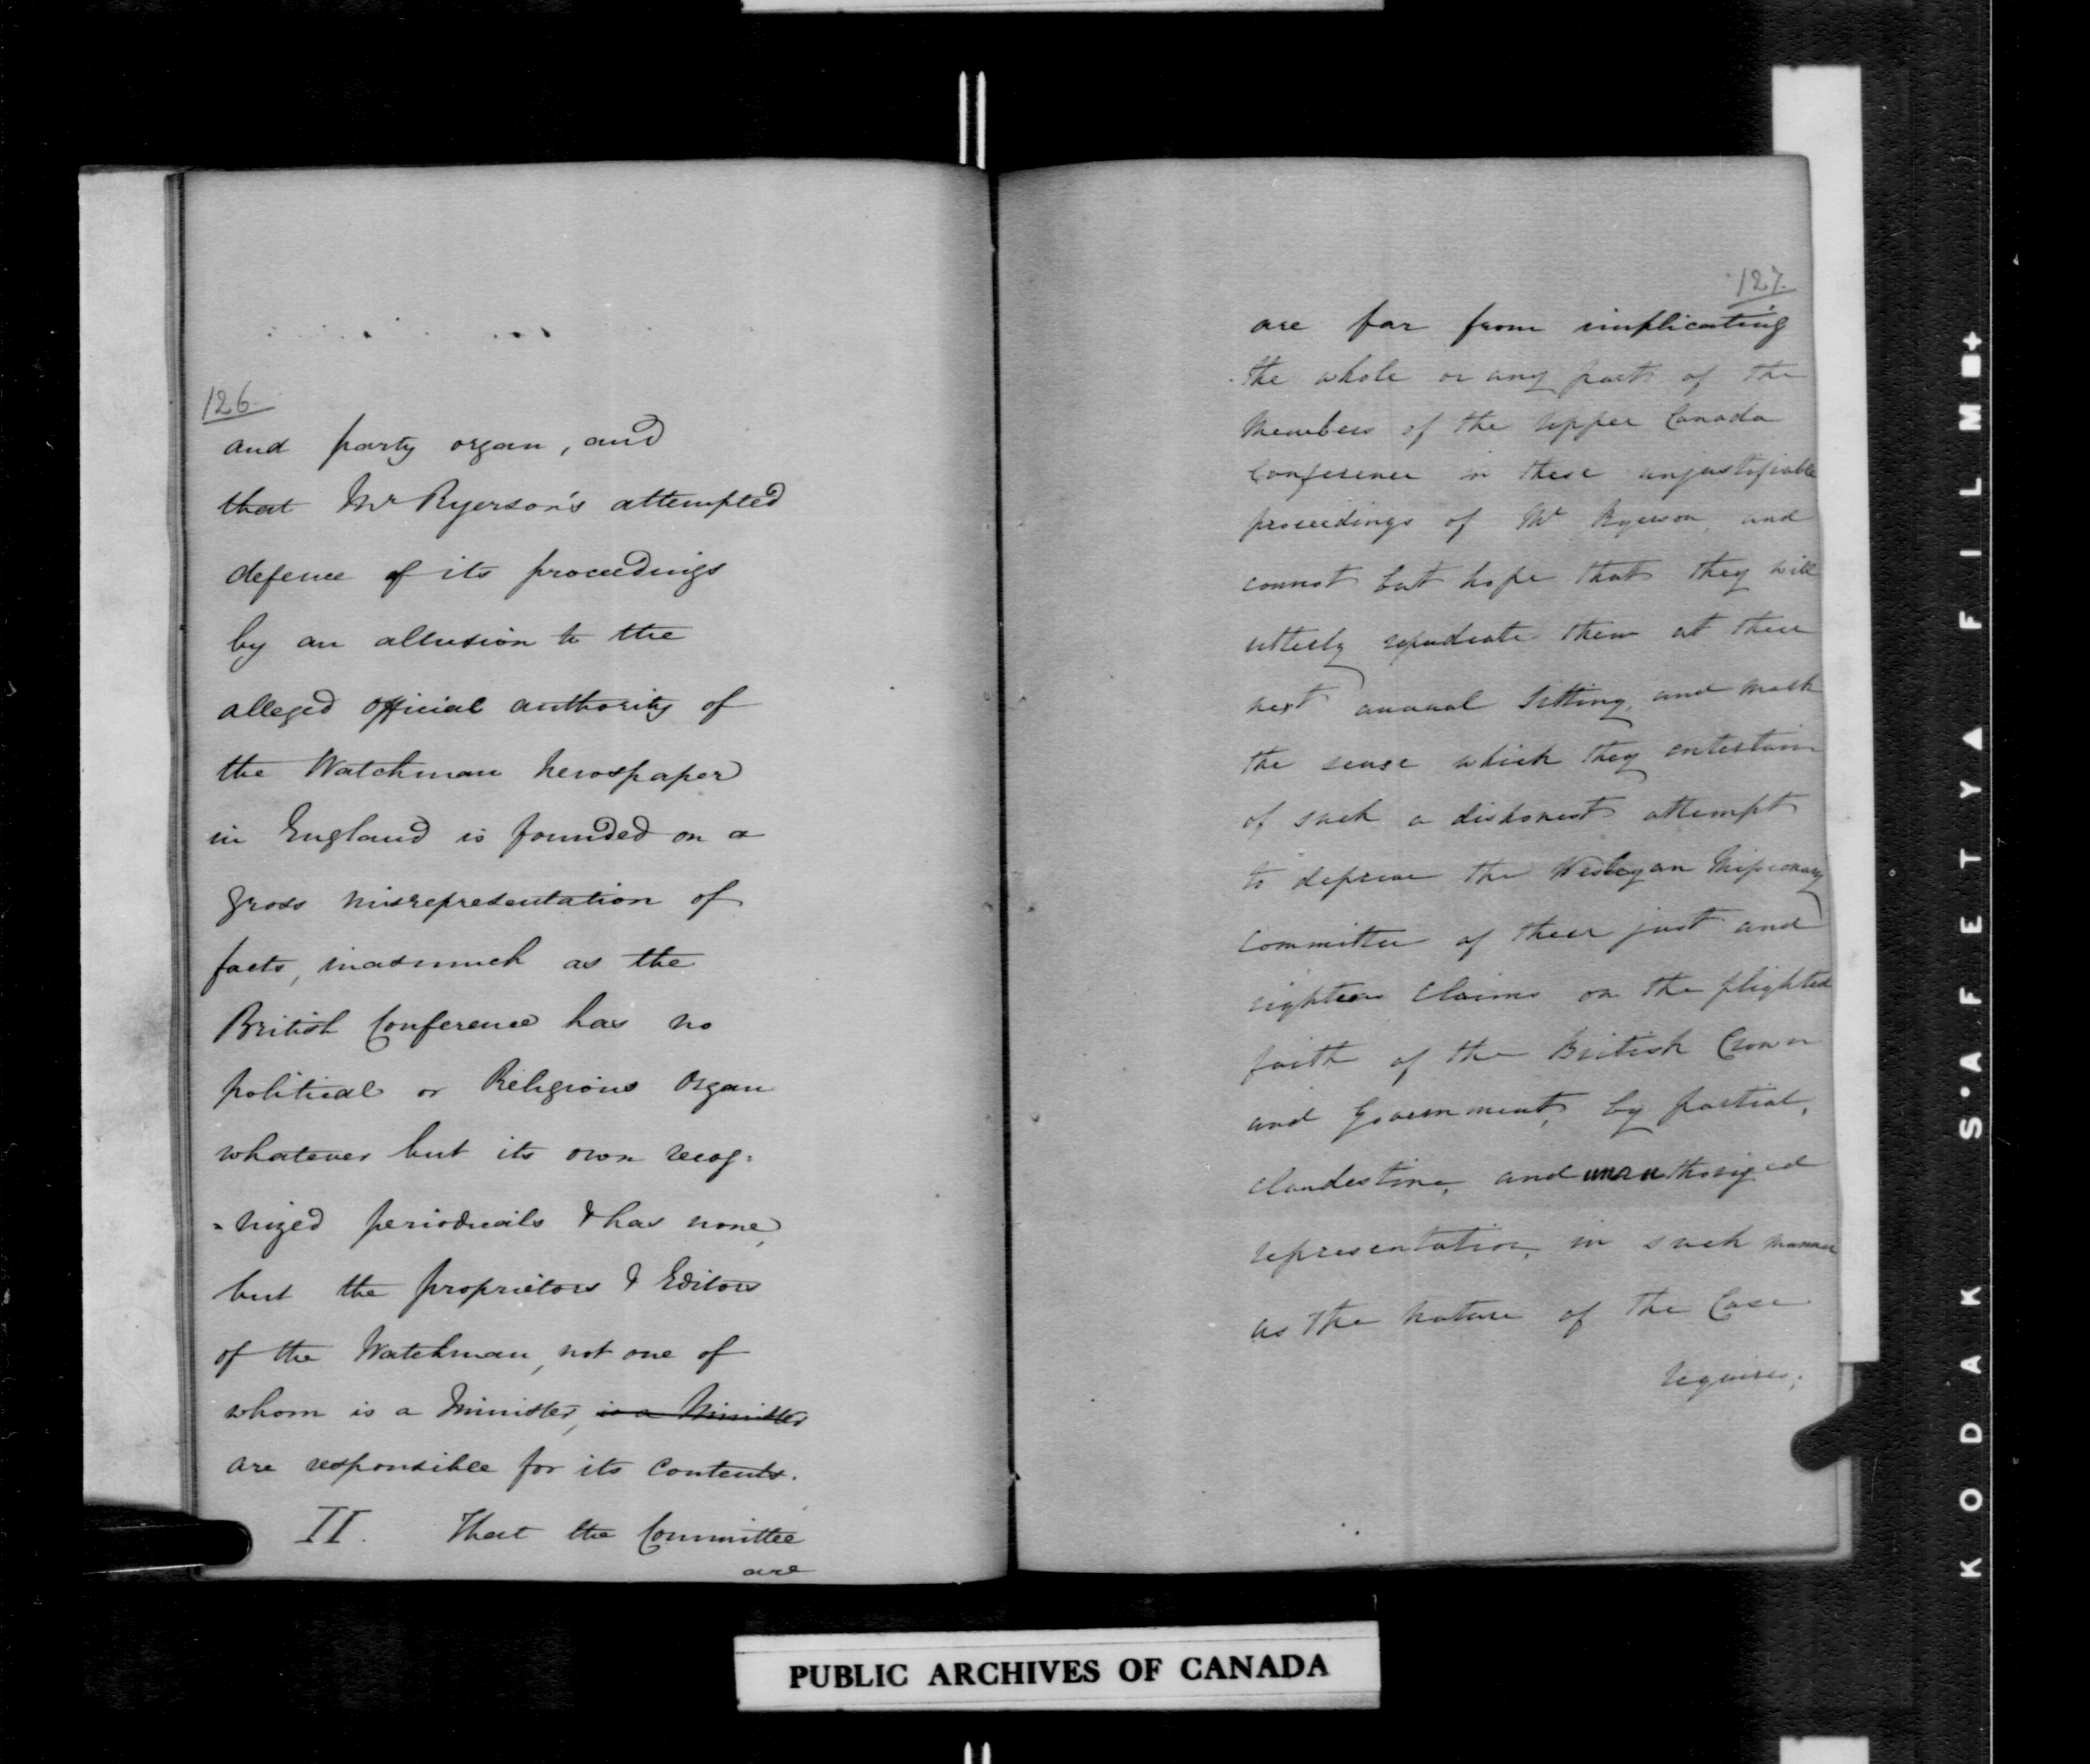 126
and party organ, and
that Mr Ryerson's attempted
defence of its proceedings
by an allusion to the
alleged official authority of
the Watchman Newspaper
in England is founded on a
gross misrepresentation of
facts, inasmuch as the
British Conference has no
political or Religious Organ
whatever but its own recog=
=nized periodicals & has none,
but the proprietors & Editors
of the Watchman, not one of
whom is a Minister, is a Minister
are responsible for its Contents.
II. That the Committee
are
127.
are far from implicating
the whole or any part of the
Members of the Upper Canada
Conference in these unjustifiable
proceedings of Mr Ryerson, and
cannot but hope that they will
utterly repudiate them at their
next annual Sitting, and mark
the sense which they entertain
of such a dishonest attempt
to deprive the Wesleyan Missionary
Committee of their just and
righteous Claims on the plighted
faith of the British Crown
and Government, by partial,
clandestine, and unauthorized
representation, in such manner
as the nature of the Case
requires;
PUBLIC ARCHIVES OF CANADA
KODAK S'AFETYA FILM